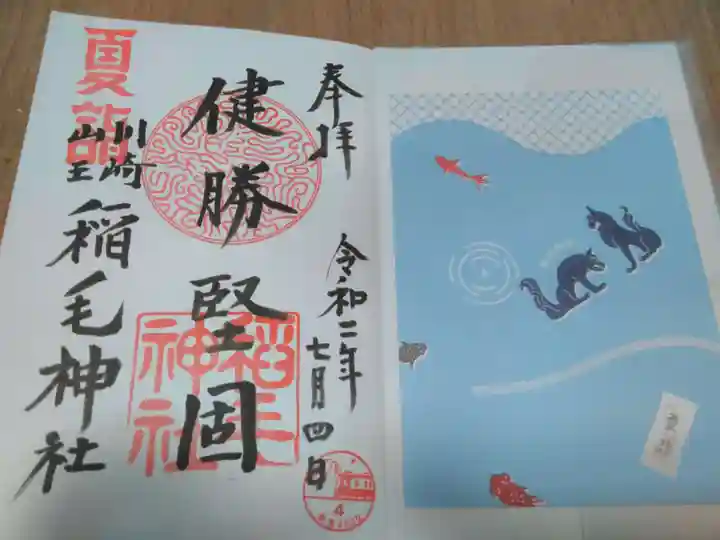 奉拝
令和二年
七月四日
健勝堅固
夏詣
川崎
山王
稲毛神社
稲毛神社
4
夏詣